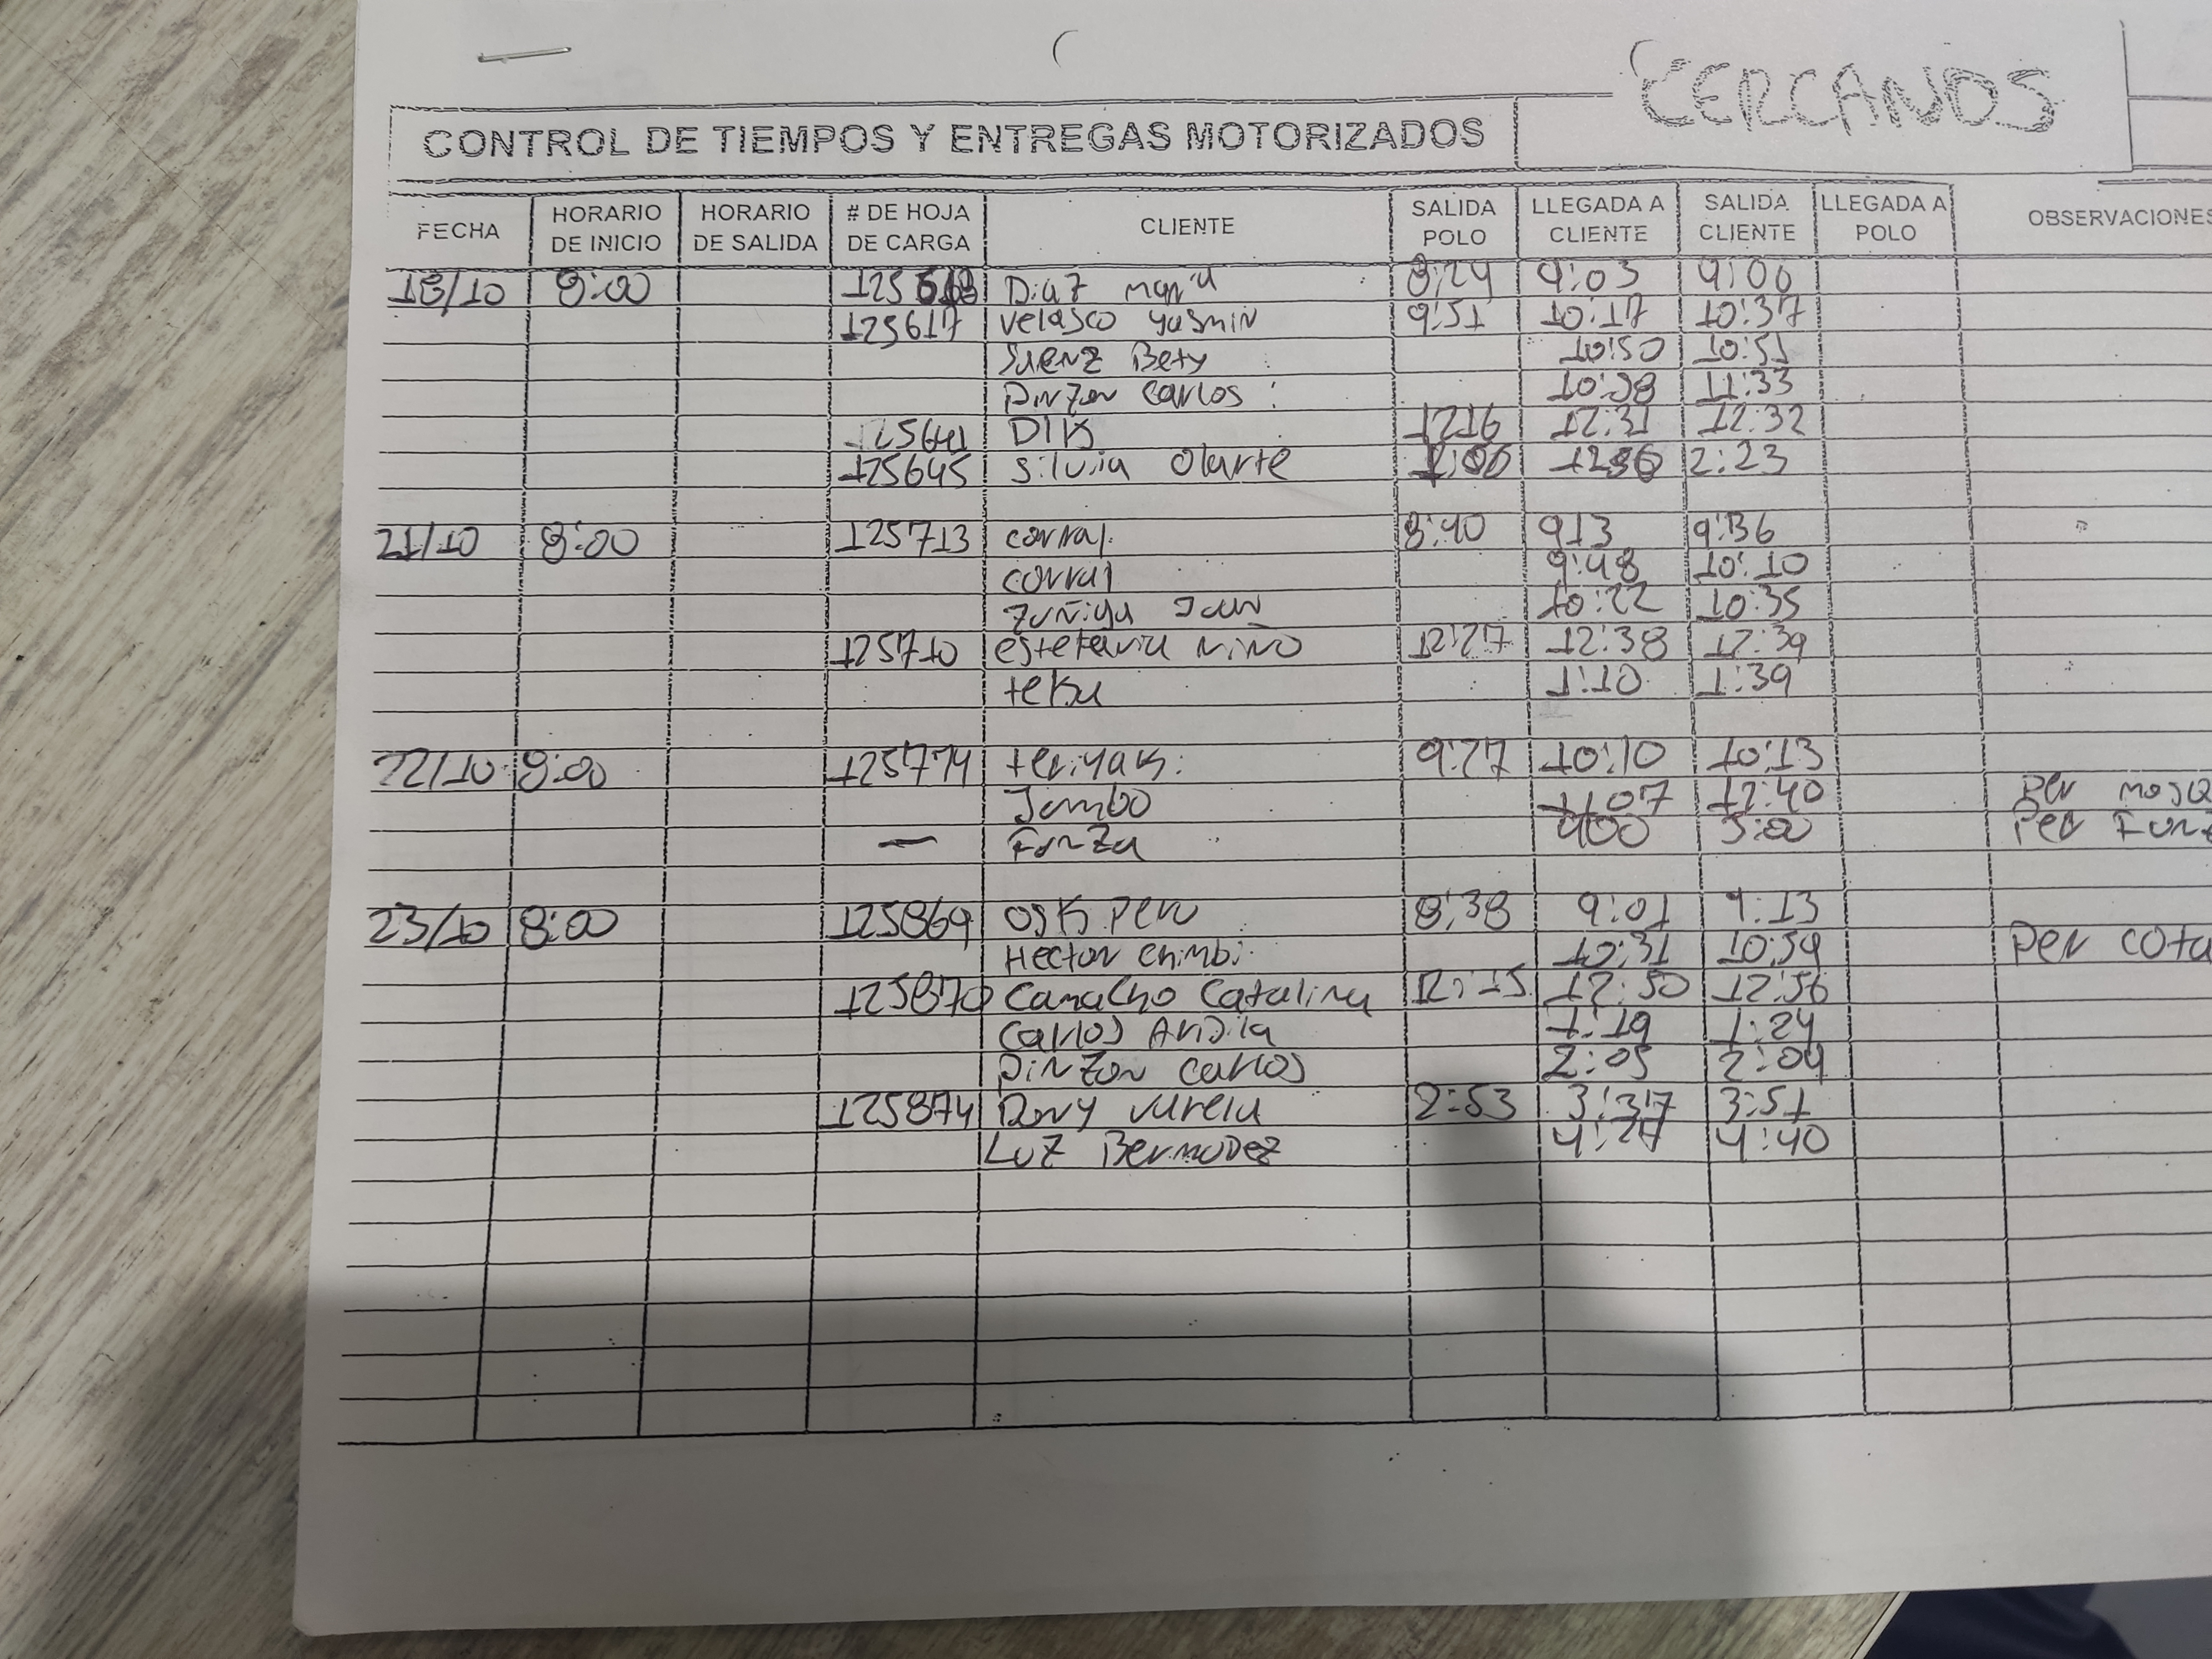 CERCANOS
CONTROL DE TIEMPOS Y ENTREGAS MOTORIZADOS
FECHA HORARIO DE INICIO HORARIO DE SALIDA # DE HOJA DE CARGA CLIENTE SALIDA POLO LLEGADA A CLIENTE SALIDA CLIENTE LLEGADA A POLO OBSERVACIONES
18/10 8:00 Diaz Maria 8:24 9:03
125617 Velasco Yasmin 9:51 10:17 10:37
Saenz Bety 10:50 10:51
Pinzon Carlos 11:33
125641 DIK 1216 12:31 12:32
125645 Silvia Olarte 2:23
21/10 8:00 125713 corral 8:40 913 9:36
corral 9:48 10:10
Zuñiga Juan 10:22 10:35
125710 estefania niño 12:27 12:38 12:39
teku 1:10 1:39
22/10 8:00 125774 teriyaki 9:27 10:10 10:13
Jumbo 1107 12:40 Per
— Funza 400 5:00 Per
23/10 8:00 125869 OSK Peru 8:38 9:01 9:13
Hector chimbi 10:31 10:59 Per cota
125870 Camacho Catalina 12:15 12:50 12:56
Carlos Ardila 1:19 1:24
Pinzon carlos 2:05 2:09
125874 Dony Varela 2:53 3:37 3:51
Luz Bermudez 4:27 4:40